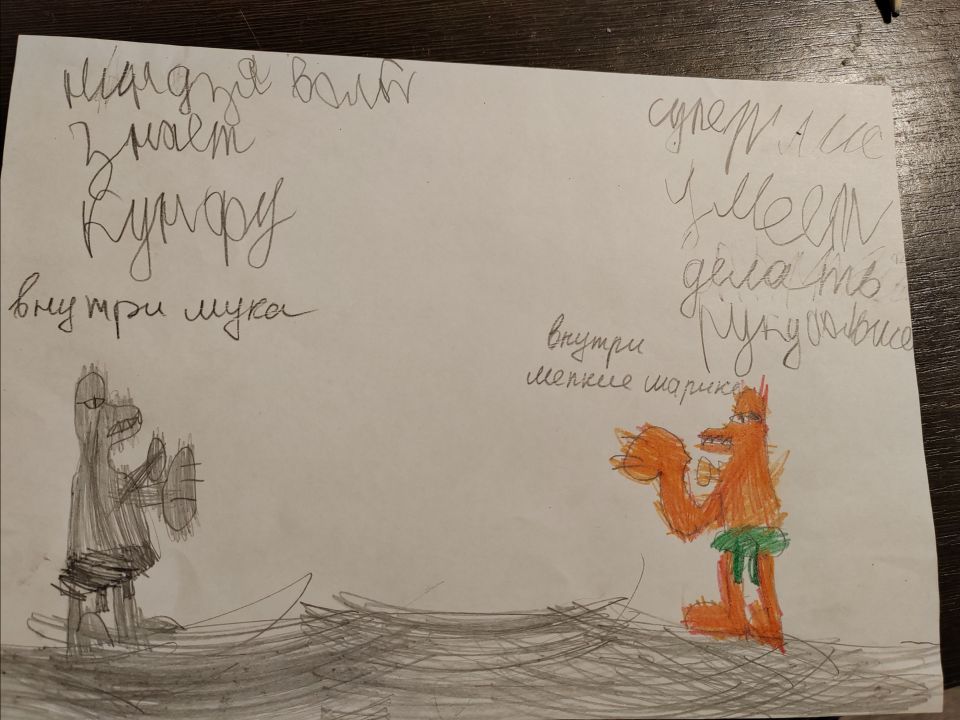 ниндзя волк
знает
кунгфу
внутри мука
супер лис
умеет
делать
внутри
мелкие шарики